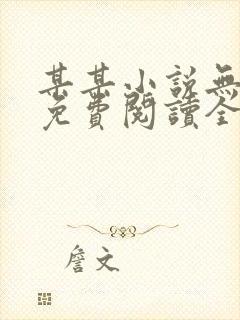 甚甚小說無
免費閱讀全
詹文